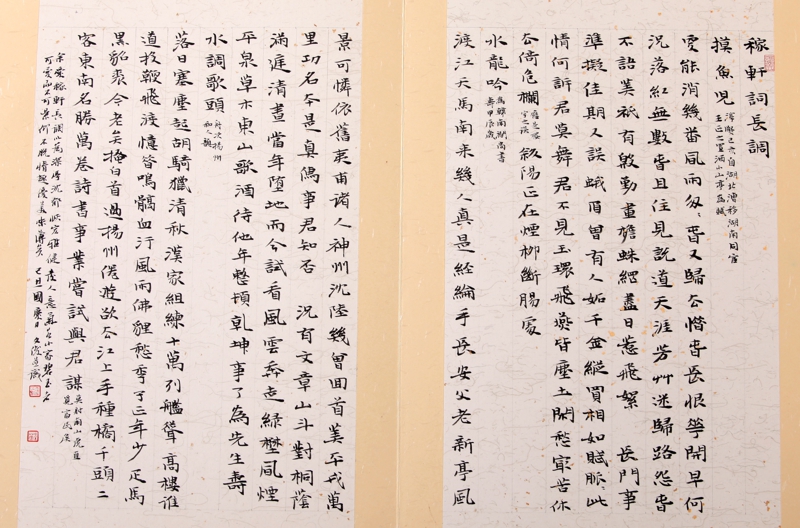 稼軒詞長調
摸魚兒 淳熙己亥自湖北漕移湖南同官
王正之置酒小山亭為賦
更能消幾番風雨匆匆春又歸去惜春長恨華開早何
況落紅無數春且住見說道天涯芳艸迷歸路怨春
不語算祇有殷勤畫檐蛛網盡日惹飛絮 長門事
準擬佳期又誤蛾眉曾有人妬千金縱買相如賦脈脈此
情何訴君莫舞君不見玉環飛燕皆塵土閑愁最苦休
去倚危欄 斜陽正在煙柳斷腸處
水龍吟 為韓南澗尚書
壽甲辰歲
渡江天馬南來幾人真是經綸手長安父老新亭風
景可憐依舊夷甫諸人神州沈陸幾曾回首算平戎萬
里功名本是真儒事君知否 況有文章山斗對桐蔭
滿庭清晝當年墮地而今試看風雲奔走綠野風煙
平泉草木東山歌酒待他年整頓乾坤事了為先生壽
水調歌頭 舟次揚州
和人韻
落日塞塵起胡騎獵清秋漢家組練十萬列艦聳高樓誰
道投鞭飛渡憶昔鳴髇血汙風雨佛貍愁季子正年少匹馬
黑貂裘今老矣搔白首過揚州倦遊欲去江上手種橘千頭二
客東南名勝萬卷詩書事業嘗試與君謀 莫射南山虎直
覓富民侯
余愛稼軒長調以為深得沈鬱
己丑國慶日